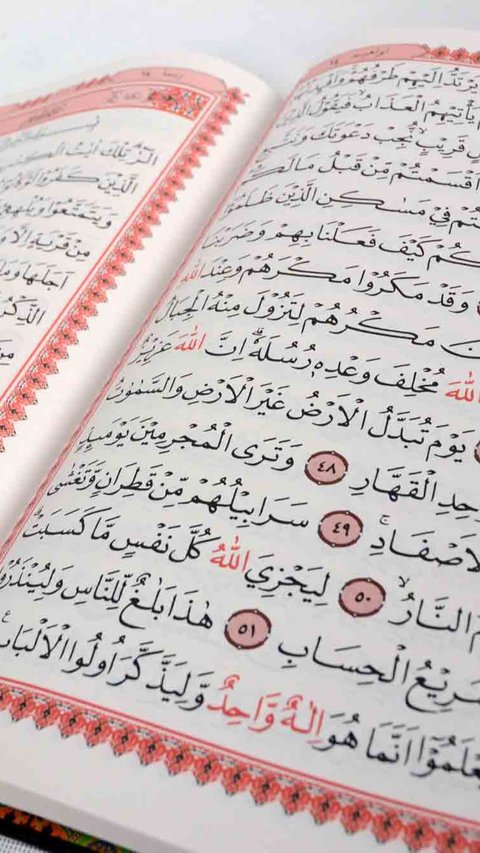 يَرْتَدُّ اِلَيْهِمْ طَرْفُهُمْ
يَأْتِيهِمُ الْعَذَابُ فَيَقُولُ
قَرِيبٍ نُجِبْ دَعْوَتَكَ
اَقْسَمْتُمْ مِنْ قَبْلُ مَالَكُ
تُمْ فِي مَسَاكِنِ الَّذِينَ ظَلَمُوا
كُمْ كَيْفَ فَعَلْنَا بِهِمْ وَضَرَبْنَا
وَقَدْ مَكَرُوا مَكْرَهُمْ وَعِنْدَ اللّٰهِ
مَكْرُهُمْ لِتَزُولَ مِنْهُ الْجِبَالُ
اللّٰهَ مُخْلِفَ وَعْدِهٖ رُسُلَهُ اِنَّ اللّٰهَ عَزِيزٌ
يَوْمَ تُبَدَّلُ الْاَرْضُ غَيْرَ الْاَرْضِ وَالسَّمٰوَاتُ
حِدِ الْقَهَّارِ ٤٨ وَتَرَى الْمُجْرِمِينَ يَوْمَئِذٍ
الْاَصْفَادِ ٤٩ سَرَابِيلُهُمْ مِّنْ قَطِرَانٍ وَّتَغْشٰى
النَّارُ ٥٠ لِيَجْزِيَ اللّٰهُ كُلَّ نَفْسٍ مَّا كَسَبَتْ
رِيعُ الْحِسَابِ ٥١ هٰذَا بَلٰغٌ لِّلنَّاسِ وَلِيُنْذَرُوا
عْلَمُوٓا اَنَّمَا هُوَ اِلٰهٌ وَّاحِدٌ وَّلِيَذَّكَّرَ اُولُوا الْاَلْبَابِ
الٓرٰ تِلْكَ اٰيٰتُ
الَّذِينَ كَفَرُوا
وَيَتَمَتَّعُوا وَيُلْهِهِمُ
مِنْ قَرْيَةٍ اِلَّا
اَجَلَهَا وَمَا
الذِّكْرُ